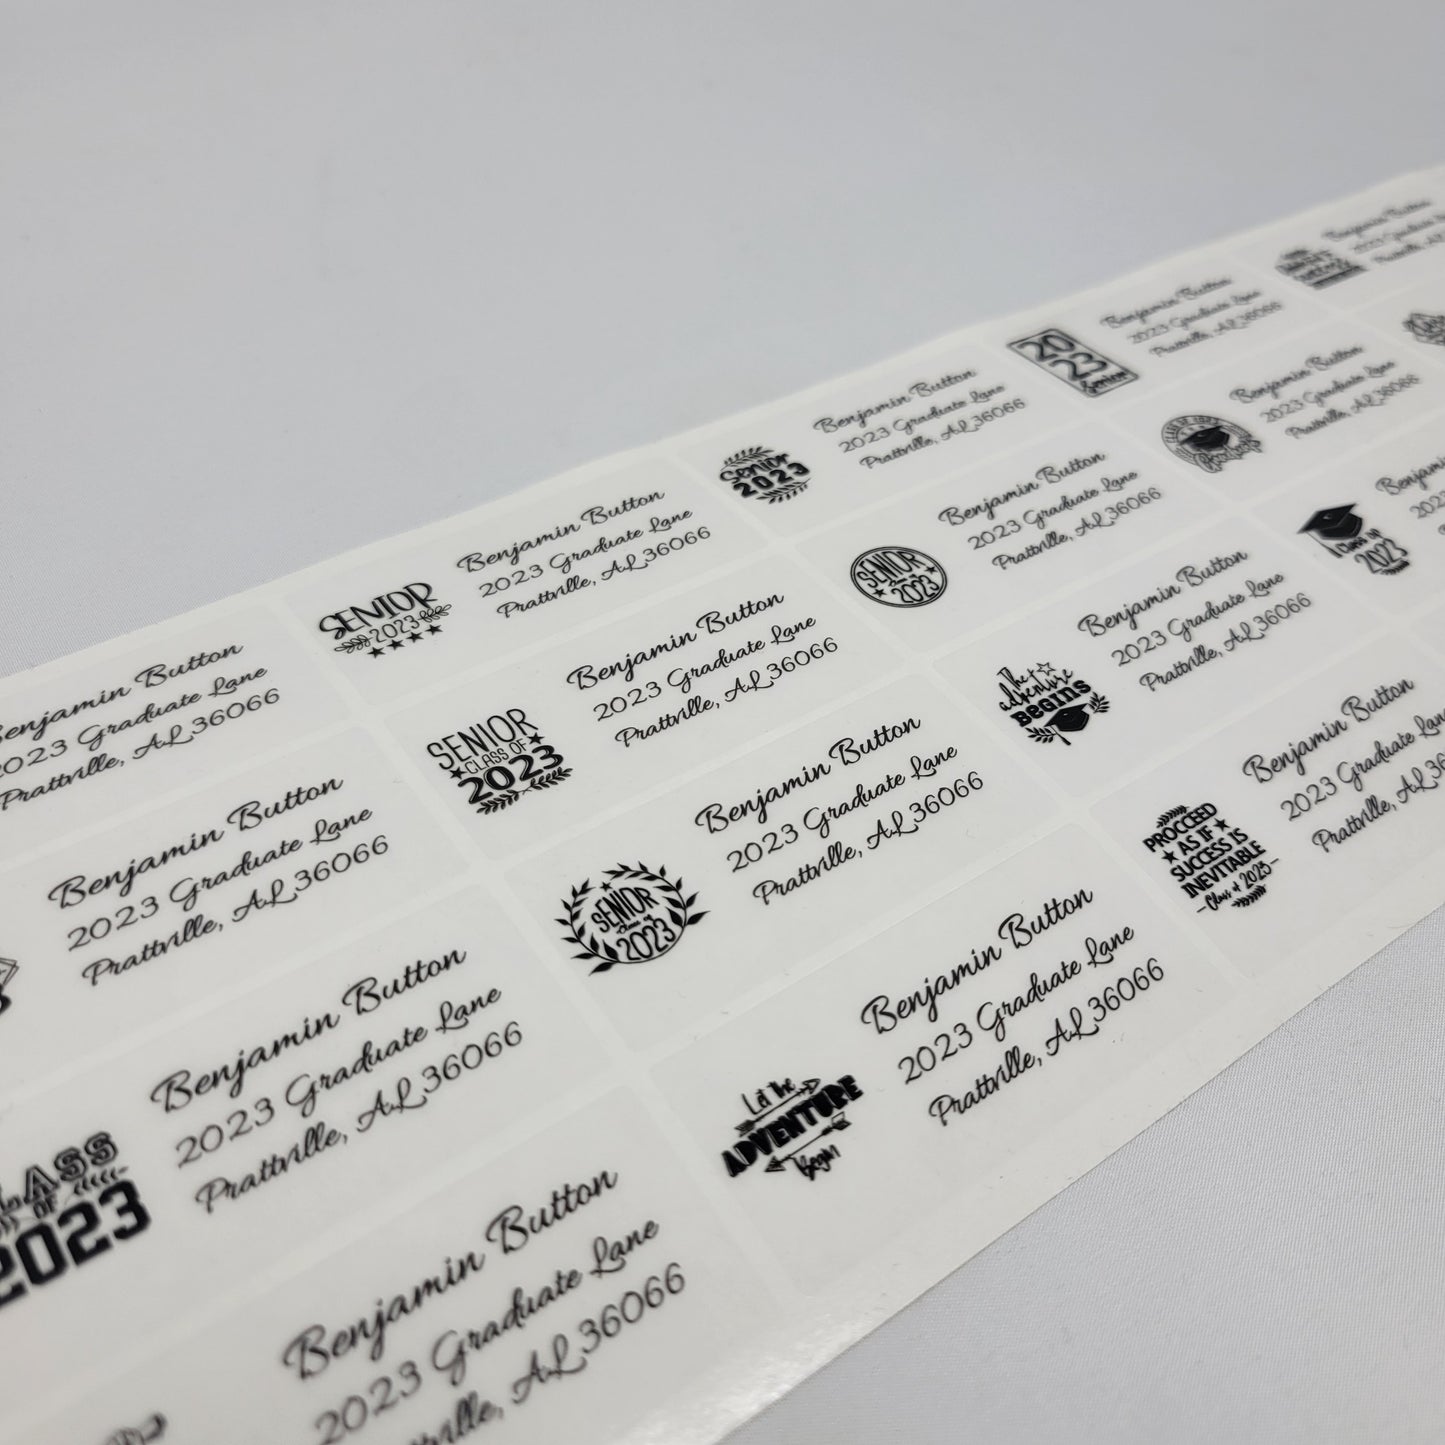 Benjamin Button
2023 Graduate Lane
Prattville, AL 36066
SENIOR
2023
Benjamin Button
2023 Graduate Lane
Prattville, AL 36066
SENIOR
2023
Benjamin Button
2023 Graduate Lane
Prattville, AL 36066
20
23
Senior
Benjamin Button
2023 Graduate Lane
Prattville, AL 36066
Benjamin Button
2023 Graduate
Prattville, AL
Benjamin Button
2023 Graduate Lane
Prattville, AL 36066
SENIOR
CLASS OF
2023
Benjamin Button
2023 Graduate Lane
Prattville, AL 36066
SENIOR
class of
2023
Benjamin Button
2023 Graduate Lane
Prattville, AL 36066
CLASS OF 2023
Benjamin Button
2023 Graduate Lane
Prattville, AL 36066
CLASS
OF
2023
Benjamin Button
2023 Graduate Lane
Prattville, AL 36066
SENIOR
class of
2023
Benjamin Button
2023 Graduate Lane
Prattville, AL 36066
The
adventure
BEGINS
Benjamin Button
2023 Graduate Lane
Prattville, AL 36066
Class of
2023
Benjamin Button
2023 Graduate Lane
Prattville, AL 36066
Let The
ADVENTURE
Begin
Benjamin Button
2023 Graduate Lane
Prattville, AL 36066
PROCCEED
AS IF
SUCCESS IS
INEVITABLE
Class of 2023
Benjamin Button
2023 Graduate Lane
Prattville, AL